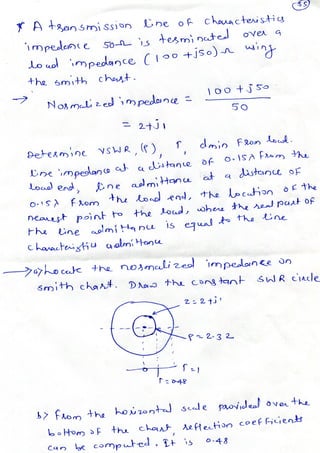 35
* A transmission line of characteristics
impedance 50-Ω is terminated over a
load impedance (100+j50)Ω using
the smith chart.
→ Normalized impedance = 100+j50
50
= 2+j1
Determine VSWR, (r), Γ, dmin from load.
Line impedance at a distance of 0.15λ from the
load end, line admittance at a distance of
0.15λ from the load end, the location of the
nearest point to the load, where the real part of
the line admittance is equal to the line
characteristic admittance
→ a) Locate the normalized impedance on
smith chart. Draw the constant SWR circle
z=2+j1
ρ=2.32
Γ=1
Γ=0.48
b) From the horizontal scale provided over the
bottom of the chart, reflection coefficients
can be computed. It is 0.48